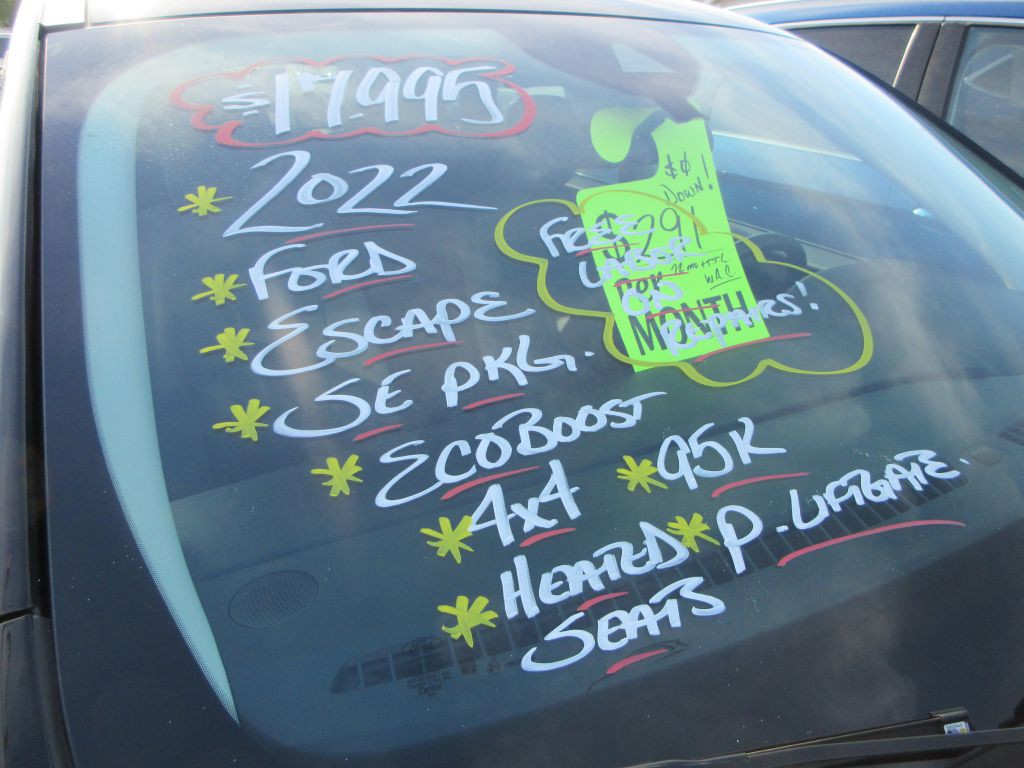 $17,995
* 2022
* FORD
* ESCAPE
* SE PKG.
* ECOBOOST
* 4x4 * 95K
* HEATED SEATS
* P. LIFTGATE.
$0 DOWN!
$291
72 mo + T.T.L
W.A.C.
MONTH
FREE
LABOR
ON
REPAIRS!